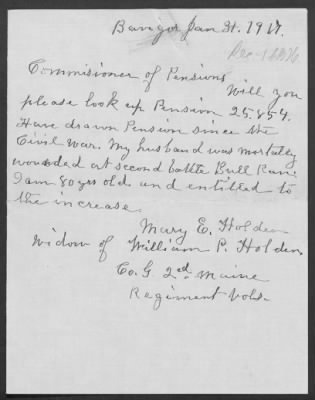 Bangor Jan 31. 1917.
Commisioner of Pensions
Will you
please look up Pension 25.854.
Have drawn Pension since the
Civil War. My husband was mortaly
wounded at second battle Bull Run.
I am 80 yrs old and entitled to
the increase.
Mary E. Holden
widow of William P. Holden.
Co. G 2ed Maine
Regiment Vols.